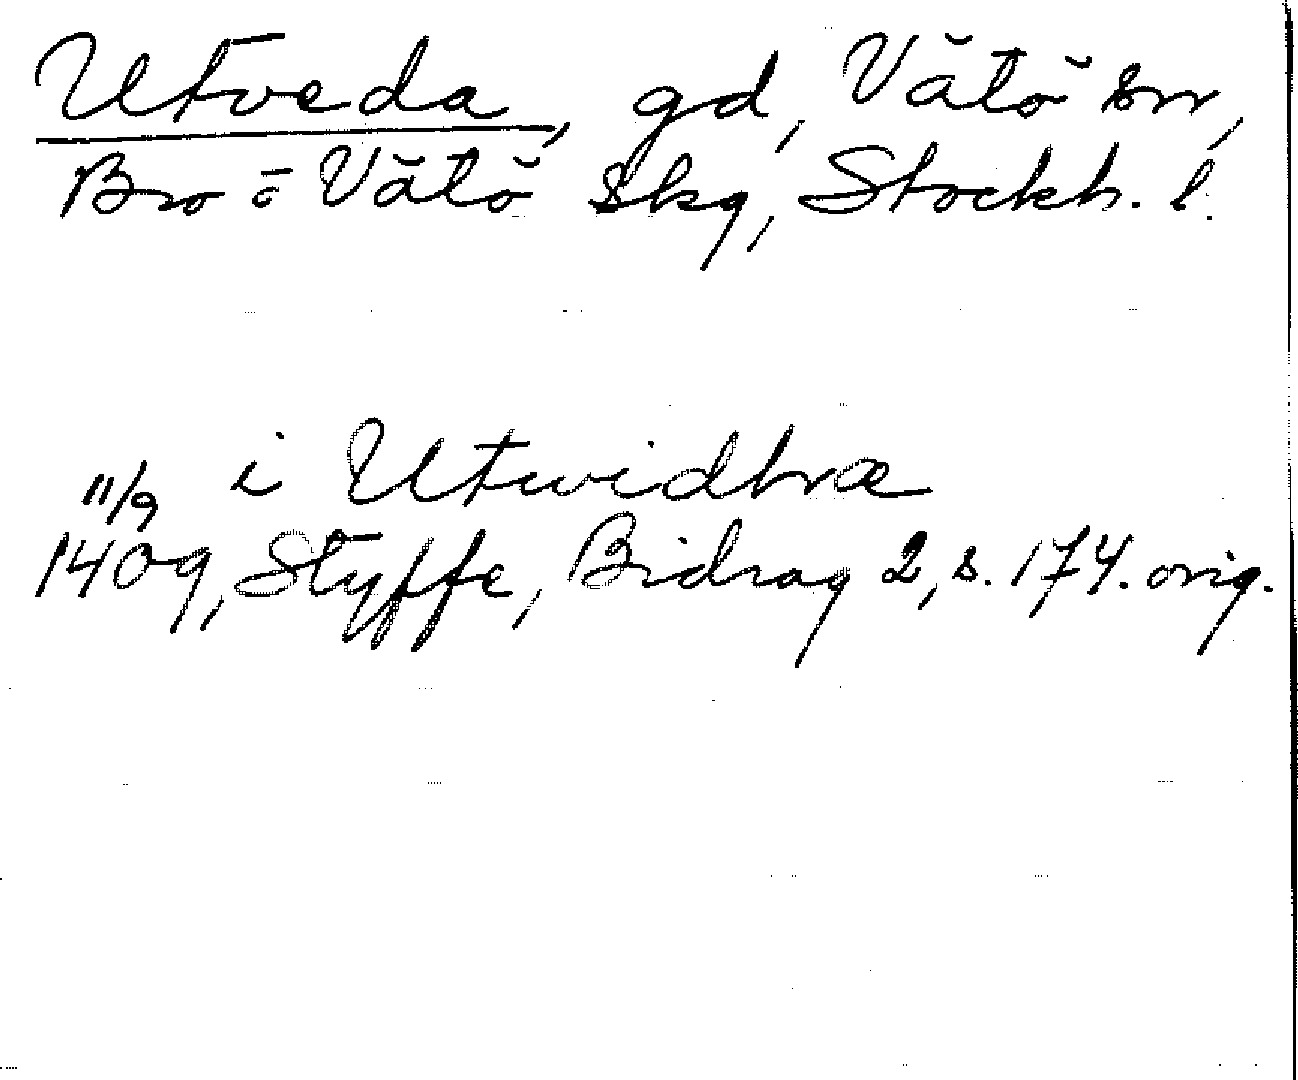 Utveda, gd, Vätö sn,
Bro o Vätö skg, Stockh. l.
i Utwidhræ
11/9
1409, Styffe, Bidrag 2, s. 174. orig.